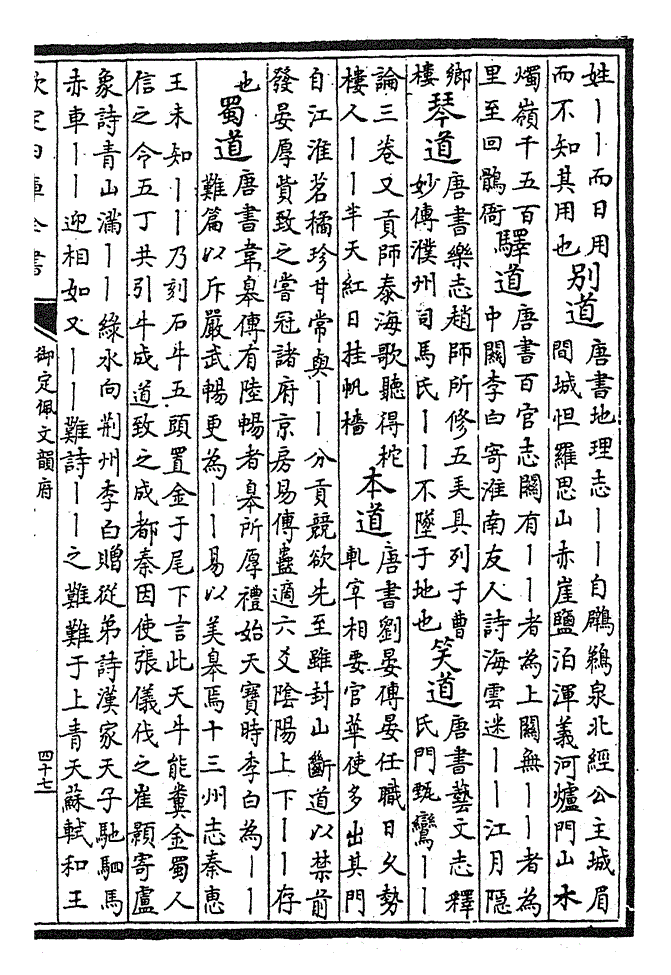 姓丨丨而日用
而不知其用也
別道
唐書地理志丨丨自鸊鵜泉北經公主城眉
間城怛羅思山赤崖鹽泊渾義河爐門山木
燭嶺千五百
里至回鶻衙
驛道
唐書百官志關有丨丨者為上關無丨丨者為
中關李白寄淮南友人詩海雲迷丨丨江月隱
鄉
樓
琴道
唐書樂志趙師所修五美具列于曹
妙傳濮州司馬氏丨丨不墜于地也
笑道
唐書藝文志釋
氏門甄鸞丨丨
論三卷又貢師泰海歌聽得柁
樓人丨丨半天紅日挂帆檣
本道
唐書劉晏傳晏任職日久勢
軋宰相要官華使多出其門
自江淮茗橘珍甘常與丨丨分貢競欲先至雖封山斷道以禁前
發晏厚貲致之嘗冠諸府京房易傳蠱適六爻陰陽上下丨丨存
也
蜀道
唐書韋皋傳有陸暢者皋所厚禮始天寶時李白為丨丨
難篇以斥嚴武暢更為丨丨易以美皋焉十三州志秦惠
王未知丨丨乃刻石牛五頭置金于尾下言此天牛能糞金蜀人
信之令五丁共引牛成道致之成都秦因使張儀伐之崔顥寄盧
象詩青山滿丨丨綠水向荆州李白贈從弟詩漢家天子馳駟馬
赤車丨丨迎相如又丨丨難詩丨丨之難難于上青天蘇軾和王
欽定四庫全書
御定佩文韻府
四十七